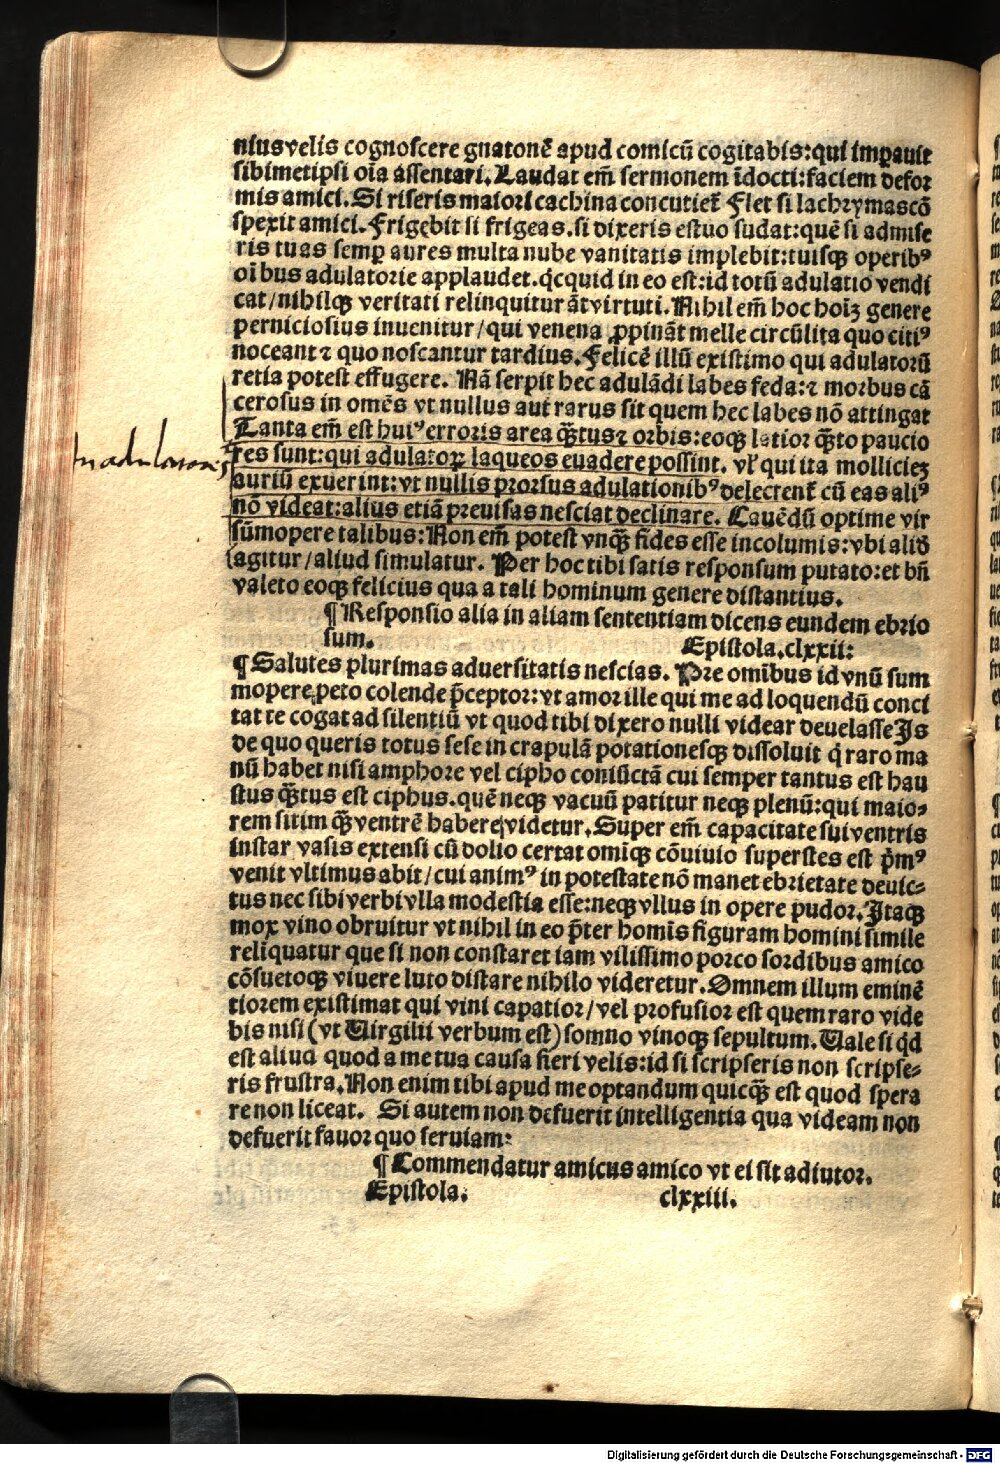 nius velis cognoscere gnatonē apud comicū cogitabis: qui imꝑauit
sibimetipsi oīa assentari. Laudat em̄ sermonem īdocti: faciem defor
mis amici. Si riseris maiori cachina concutiet᷑ Flet si lachrymas cō
spexit amici. Frigebit si frigeas. si dixeris estuo sudat: quē si admise
ris tuas semꝑ aures multa nube vanitatis implebit: tuisqꝫ operibꝰ
oībus adulatorie applaudet. qͥcquid in eo est: id totū adulatio vendi
cat / nihilqꝫ veritati relinquitur āt virtuti. Nihil em̄ hoc hoīꝫ genere
perniciosius inuenitur / qui venena ꝓpināt melle circūlita quo citiꝰ
noceant ⁊ quo noscantur tardius. Felicē illū existimo qui adulatorū
retia potest effugere. Nā serpit hec adulādi labes feda: ⁊ morbus cā
cerosus in omēs vt nullus aut rarus sit quem hec labes nō attingat
Tanta em̄ est huiꝰ erroris area qꝫ̄tus ⁊ orbis: eoqꝫ latior qꝫ̄to paucio
In adulatores
res sunt: qui adulatoꝝ laqueos euadere possint. vl᷑ qui ita molliciez
auriū exuerint: vt nullis prorsus adulationibꝰ delectent᷑ cū eas aliꝰ
nō videat: alius etiā preuisas nesciat declinare. Cauēdū optime vir
sūmopere talibus: Non em̄ potest vnqꝫ̄ fides esse incolumis: vbi aliđ
agitur / aliud simulatur. Per hoc tibi satis responsum putato: et bn̄
valeto eoqꝫ felicius qua a tali hominum genere distantius.
¶ Responsio alia in aliam sententiam dicens eundem ebrio
sum. Epistola. clxxii:
¶ Salutes plurimas aduersitatis nescias. Pre omībus id vnū sum
mopere peto colende p̄ceptor: vt amor ille qui me ad loquendū conci
tat te cogat ad silentiū vt quod tibi dixero nulli videar deuelasse Is
de quo queris totus sese in crapulā potationesqꝫ dissoluit q̇ raro ma
nū habet nisi amphore vel cipho coniūctā cui semper tantus est hau
stus qꝫ̄tus est ciphus. quē neqꝫ vacuū patitur neqꝫ plenū: qui maio⸗
rem sitim qꝫ̄ ventrē habere videtur. Super em̄ capacitate sui ventris
instar vasis extensi cū dolio certat omīqꝫ cōuiuio superstes est p̄mꝰ
venit vltimus abit / cui animꝰ in potestate nō manet ebrietate deuic⸗
tus nec sibi verbi vlla modestia esse: neqꝫ vllus in opere pudor. Itaqꝫ
mox vino obruitur vt nihil in eo p̄ter homīs figuram homini simile
relīquatur que si non constaret iam vilissimo porco sordibus amico
cōsuetoqꝫ viuere luto distare nihilo videretur. Omnem illum eminē
tiorem existimat qui vini capatior / vel profusior est quem raro vide
bis nisi (vt Virgilii verbum est) somno vinoqꝫ sepultum. Vale si qͥd
est aliud quod a me tua causa fieri velis: id si scripseris non scripse⸗
ris frustra. Non enim tibi apud me optandum quicqꝫ̄ est quod spera
re non liceat. Si autem non defuerit intelligentia qua videam non
defuerit fauor quo seruiam:
¶ Commendatur amicus amico vt ei sit adiutor.
Epistola. clxxiii.
Digitalisierung gefördert durch die Deutsche Forschungsgemeinschaft - DFG